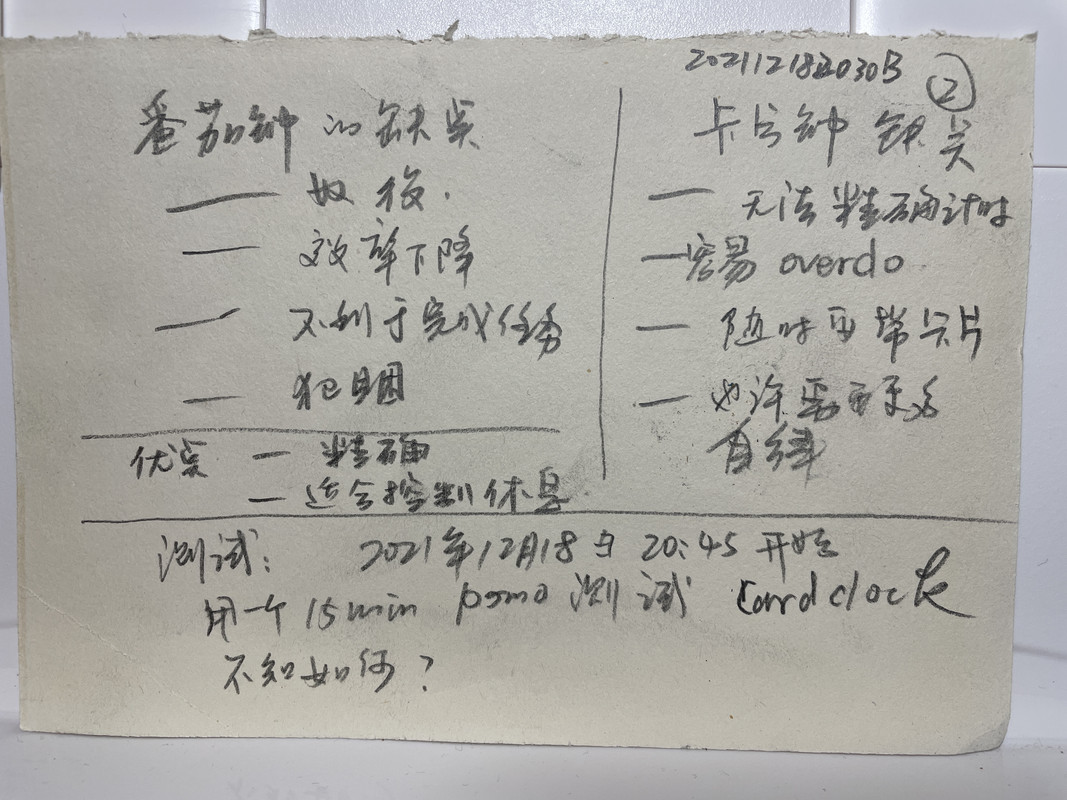 202112182030B
②
番茄钟的缺点
— 奴役.
— 效率下降
— 不利于完成任务
— 犯困
优点 — 精确
— 适合控制休息
卡片钟 缺点
— 无法精确计时
— 容易 overdo
— 随时要带卡片
— 也许需要更多
自律
测试: 2021年12月18日 20:45 开始
用一个 15min pomo 测试 Card clock
不知如何?